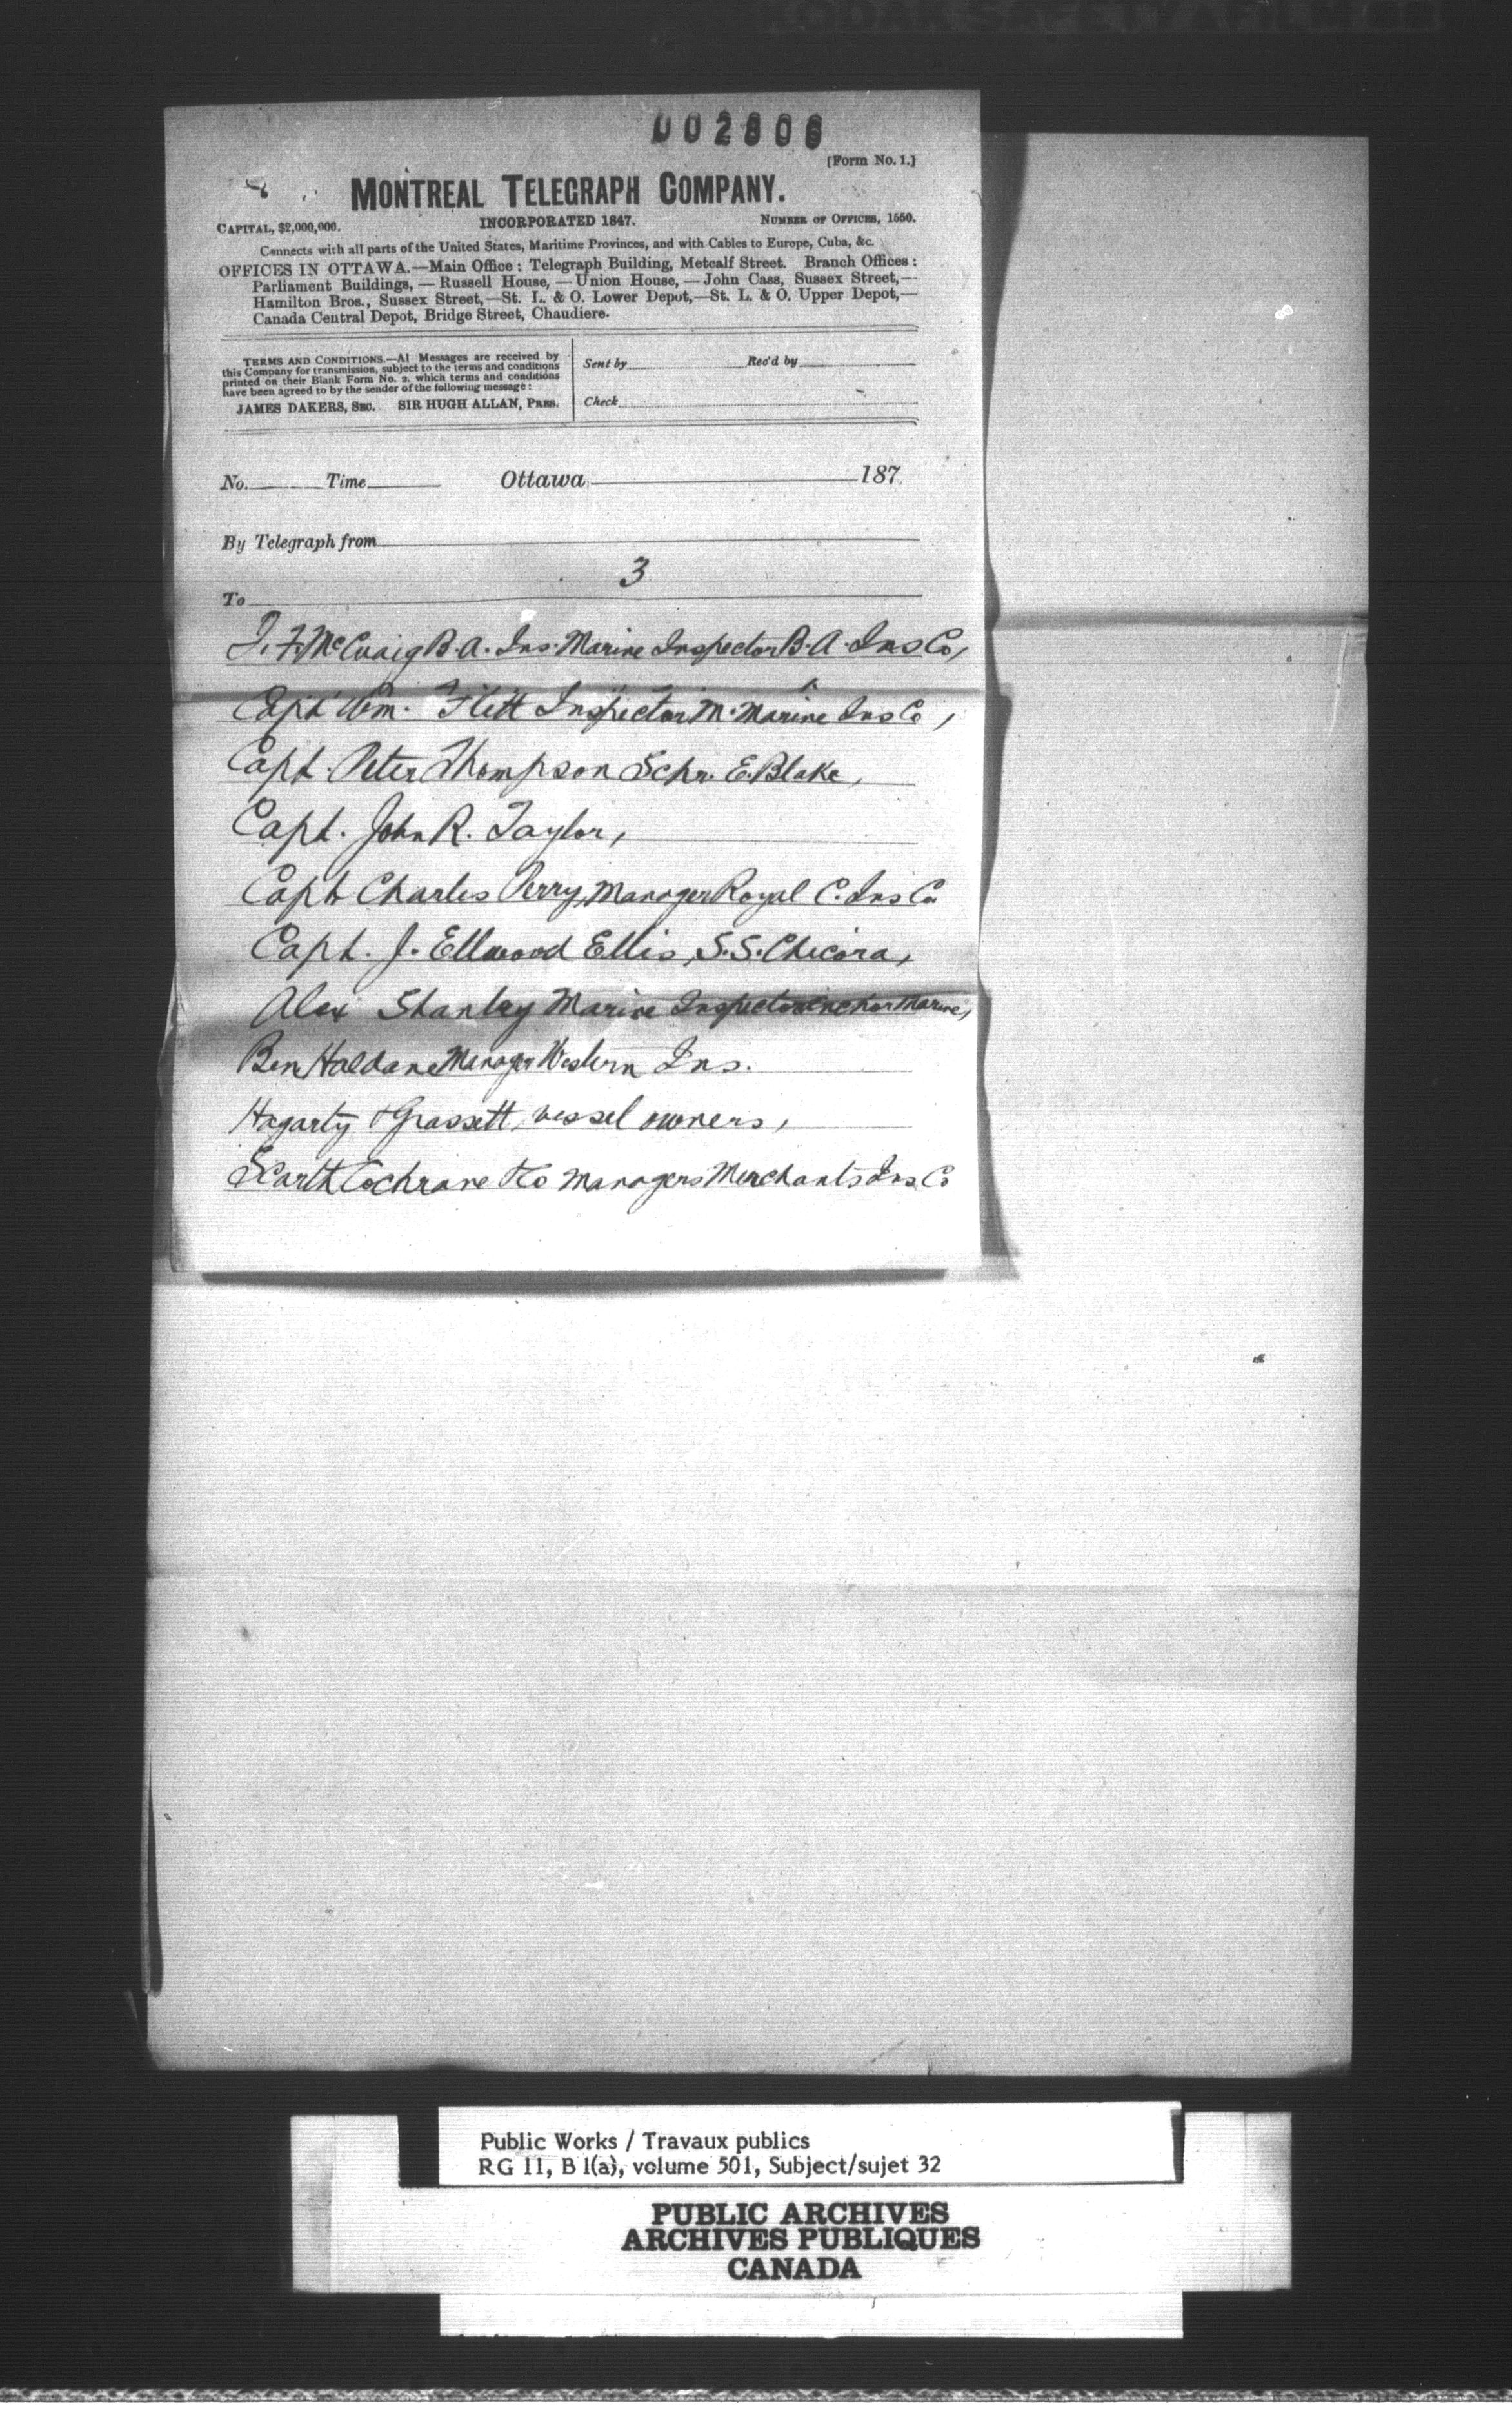 KODAK SAFETY FILM
002806
[Form No. 1.]
MONTREAL TELEGRAPH COMPANY.
CAPITAL, $2,000,000. INCORPORATED 1847. NUMBER OF OFFICES, 1550.
Connects with all parts of the United States, Maritime Provinces, and with Cables to Europe, Cuba, &c.
OFFICES IN OTTAWA.—Main Office: Telegraph Building, Metcalf Street. Branch Offices:
Parliament Buildings, — Russell House, — Union House, — John Cass, Sussex Street,—
Hamilton Bros., Sussex Street,—St. L. & O. Lower Depot,—St. L. & O. Upper Depot,—
Canada Central Depot, Bridge Street, Chaudiere.
TERMS AND CONDITIONS.—Al Messages are received by
this Company for transmission, subject to the terms and conditions
printed on their Blank Form No. 2, which terms and conditions
have been agreed to by the sender of the following message:
JAMES DAKERS, SEC. SIR HUGH ALLAN, PRES.
Sent by Rec'd by
Check
No. Time Ottawa 187
By Telegraph from
3
To
McCuaig B. A. Ins. Marine Inspector B. A. Ins Co,
Capt Wm. Flett Inspector M. Marine Ins Co,
Capt. Peter Thompson Schr. E. Blake,
Capt. John R. Taylor,
Capt Charles Perry, Manager Royal C. Ins Co
Capt. J. Ellwood Ellis, S.S. Chicora,
Alex Stanley Marine Inspector anchor Marine,
Ben Haldane Manager Western Ins.
Hagarty & Grassett, vessel owners,
Scarth Cochrane & Co Managers Merchants Ins. Co
Public Works / Travaux publics
RG 11, B 1(a), volume 501, Subject/sujet 32
PUBLIC ARCHIVES
ARCHIVES PUBLIQUES
CANADA